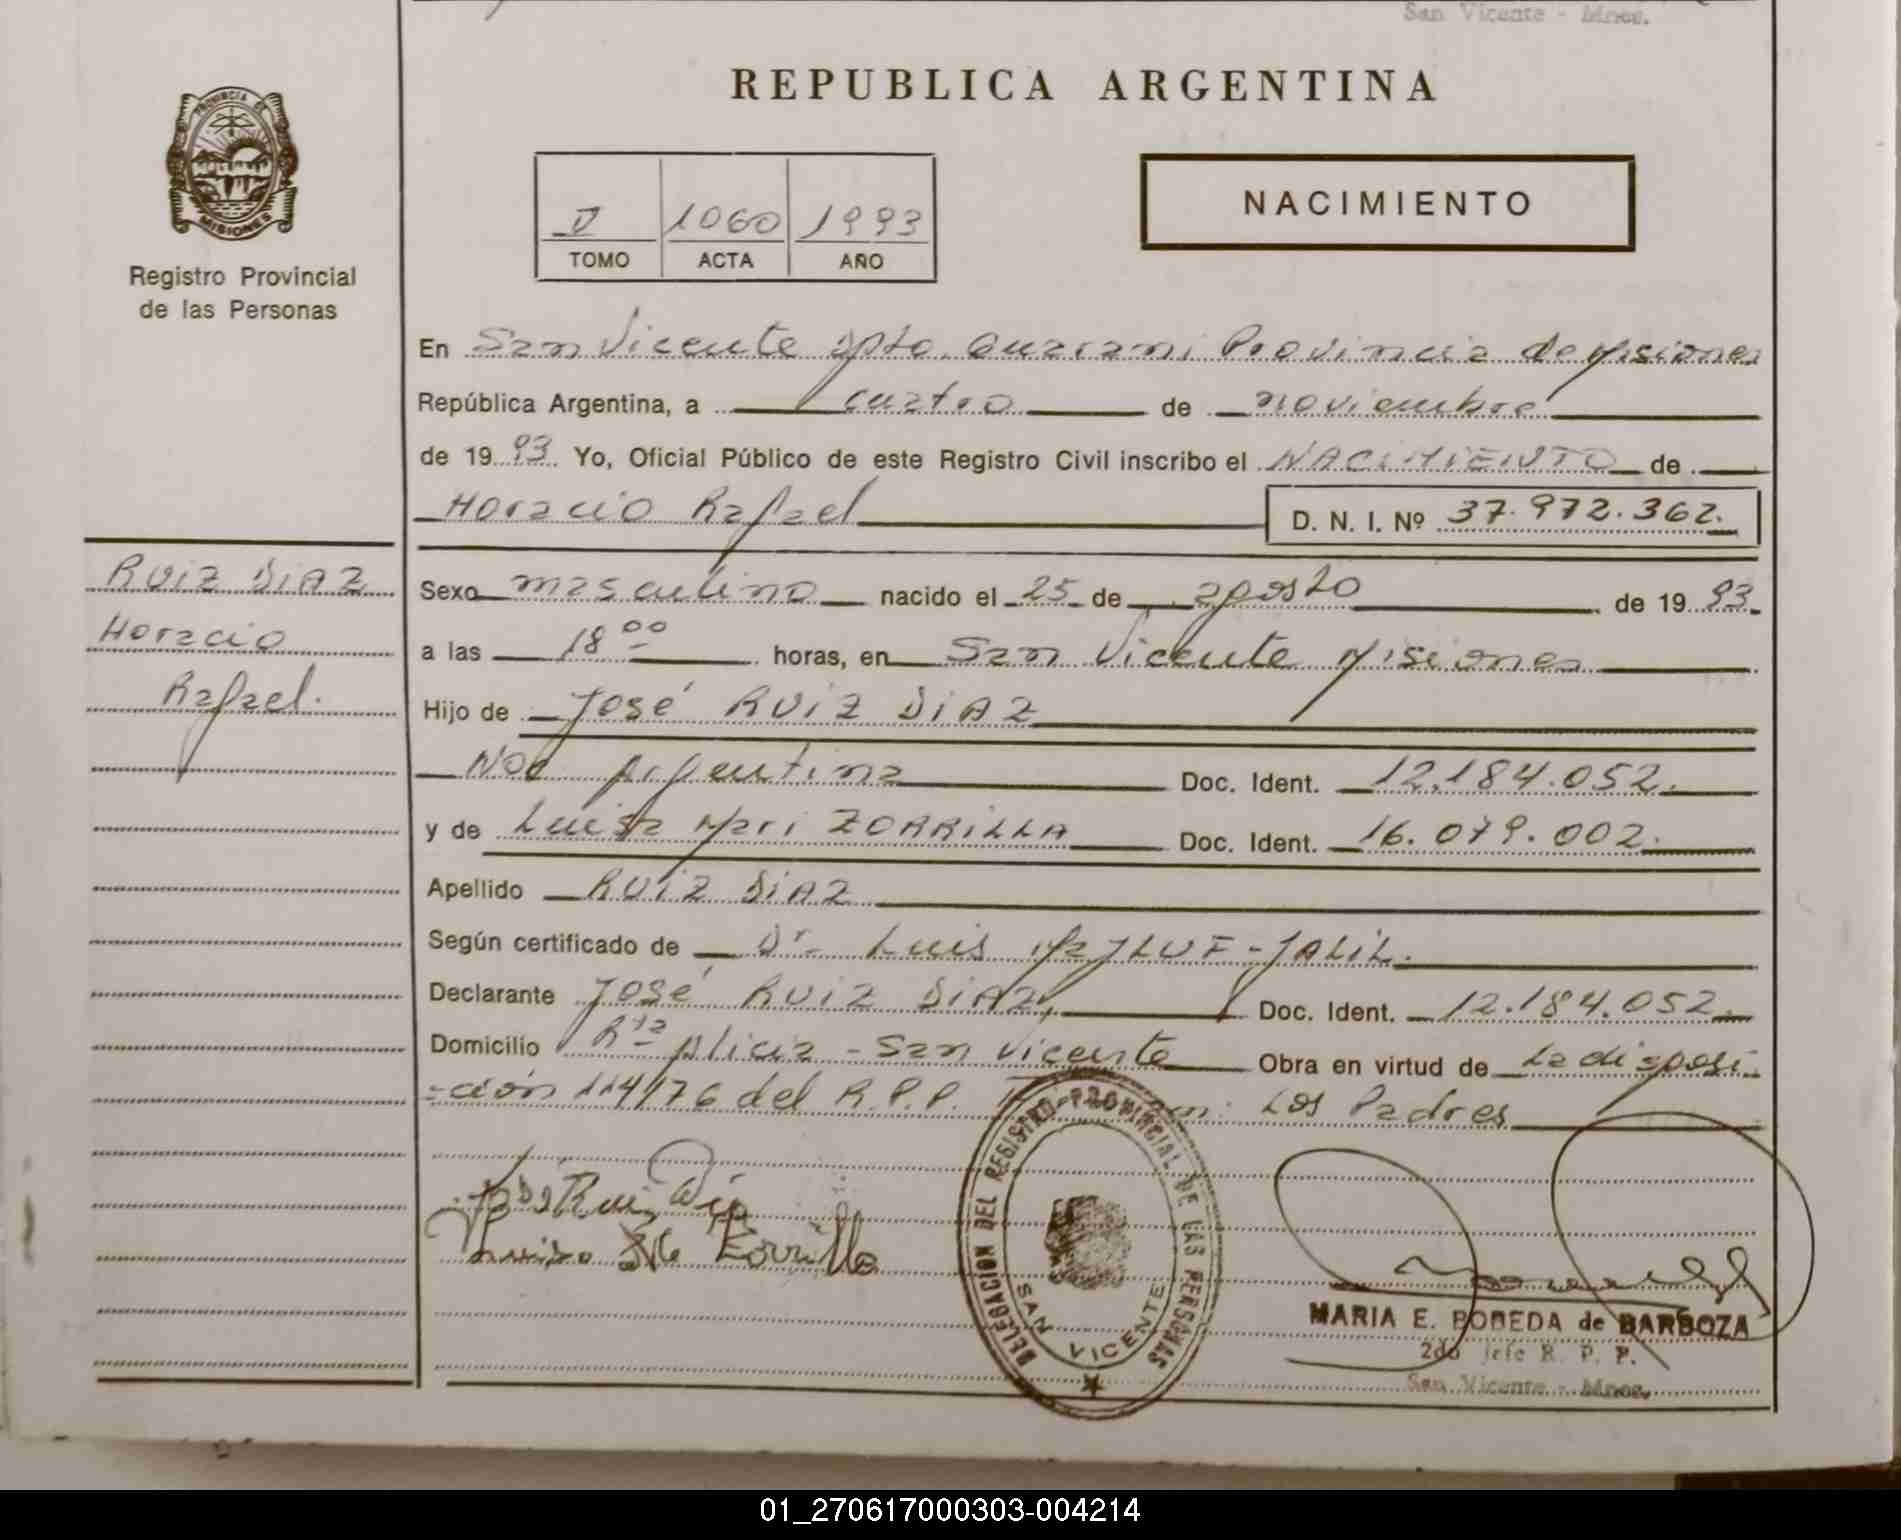 San Vicente - Mnes.
REPUBLICA ARGENTINA
PROVINCIA DE
MISIONES
Registro Provincial
de las Personas
1060 1993
TOMO ACTA AÑO
NACIMIENTO
En San Vicente Dpto. Guarani Provincia de Misiones
República Argentina, a cuatro de noviembre
de 1993 Yo, Oficial Público de este Registro Civil inscribo el NACIMIENTO de
Horacio Rafael D. N. I. Nº 37.972.362.
RUIZ DIAZ
Horacio
Rafael.
Sexo masculino nacido el 25 de agosto de 1993
a las 18 00 horas, en San Vicente Misiones
Hijo de José RUIZ DIAZ
Nac Argentina Doc. Ident. 12.184.052.
y de Luisa Mari ZORRILLA Doc. Ident. 16.079.002.
Apellido RUIZ DIAZ
Según certificado de Dr. Luis JALIL.
Declarante José RUIZ DIAZ, Doc. Ident. 12.184.052.
Domicilio Alicia - San Vicente Obra en virtud de La disposi
=ción 114/76 del R.P.P. Los Padres
DELEGACION DEL REGISTRO PROVINCIAL DE LAS PERSONAS
SAN VICENTE
MARIA E. BOBEDA de BARBOZA
2do Jefe R. P. P.
San Vicente - Mnes.
01_270617000303-004214